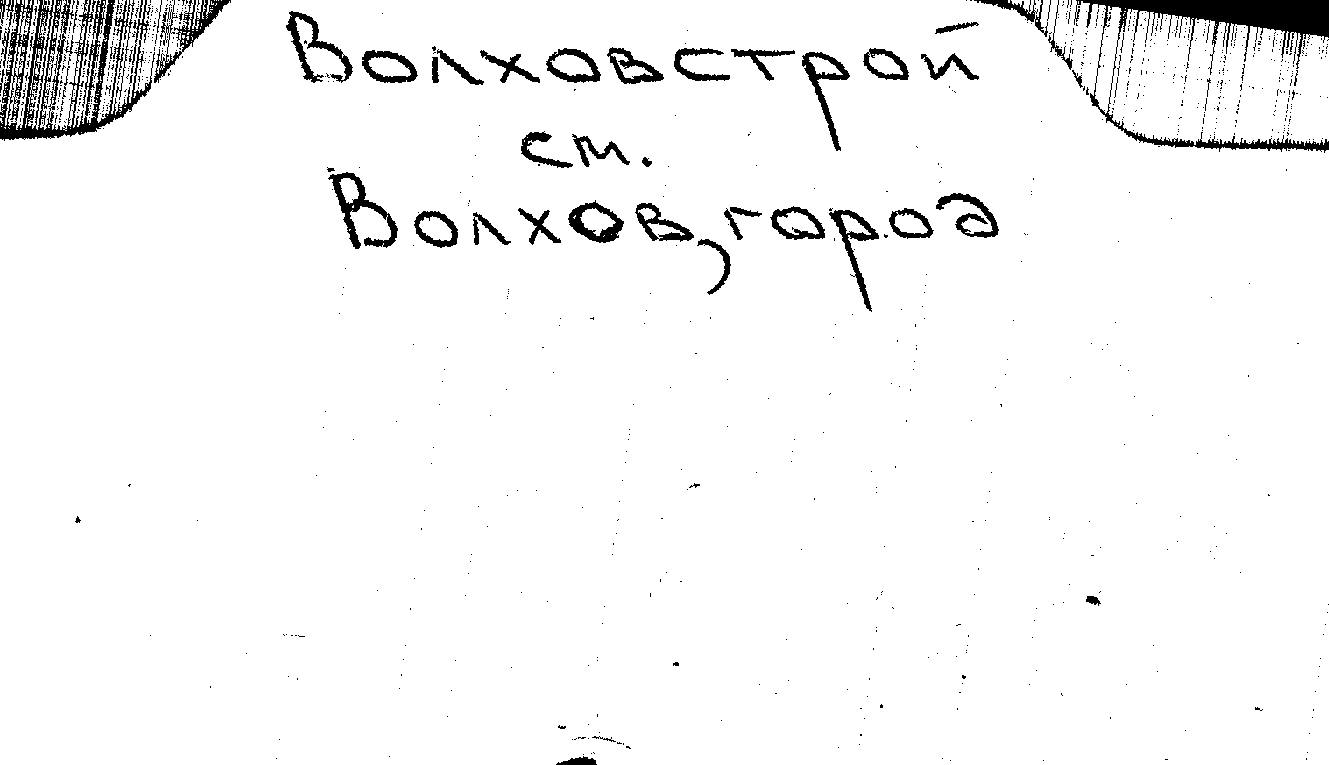 Волховстрой
см.
Волхов, город